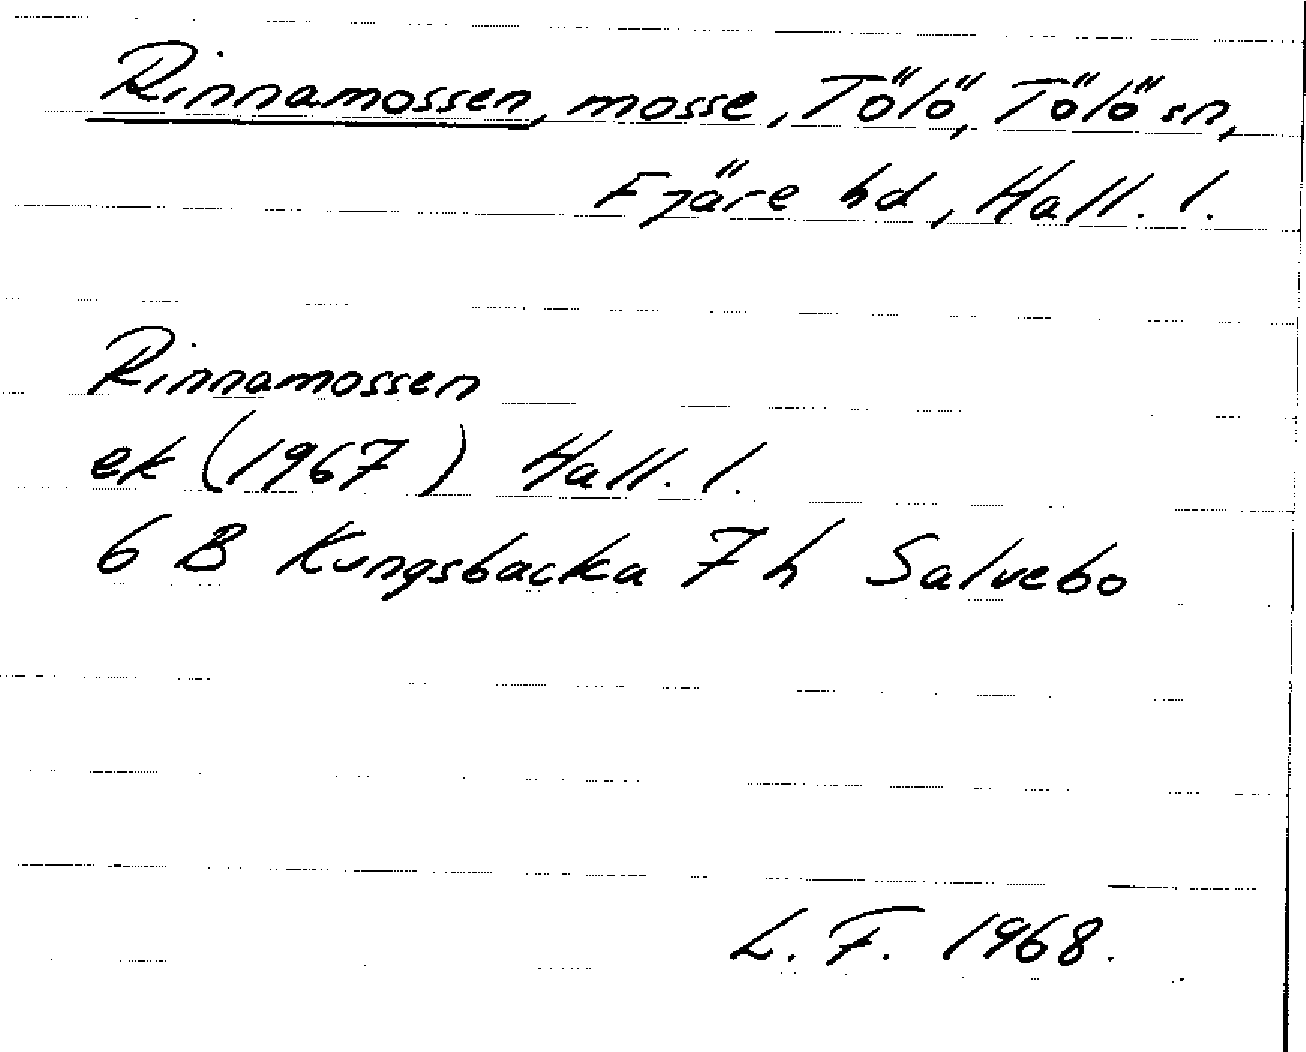 Rinnamossen, mosse, Tölö, Tölö sn,
Fjäre hd, Hall. l.
Rinnamossen
ek (1967) Hall. l.
6 B Kungsbacka 7 h Salvebo
L. F. 1968.